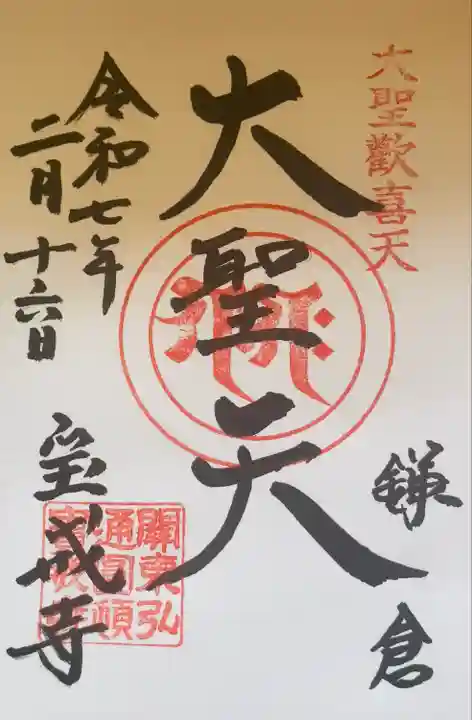 大聖歡喜天
鎌倉
大聖天
令和七年
二月十六日
宝戒寺
關東弘
通圓頓